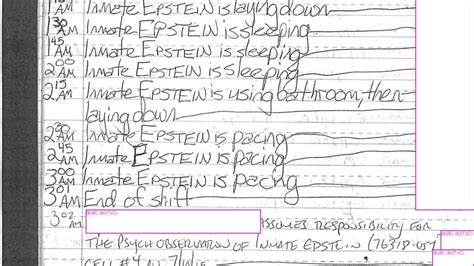 AM Inmate EPSTEIN is laying down
1 30 AM Inmate EPSTEIN is sleeping
1 45 AM Inmate EPSTEIN is sleeping
2 00 AM Inmate EPSTEIN is sleeping
2 15 AM Inmate EPSTEIN is using bathroom, then
laying down
2 30 AM Inmate EPSTEIN is pacing
2 45 AM Inmate EPSTEIN is pacing
3 00 AM Inmate EPSTEIN is pacing
3 01 AM End of shift
3 02 AM ASSUMES RESPONSIBILITY FOR
THE PSYCH OBSERVATION OF INMATE EPSTEIN (76318-054
CELL #4 ON